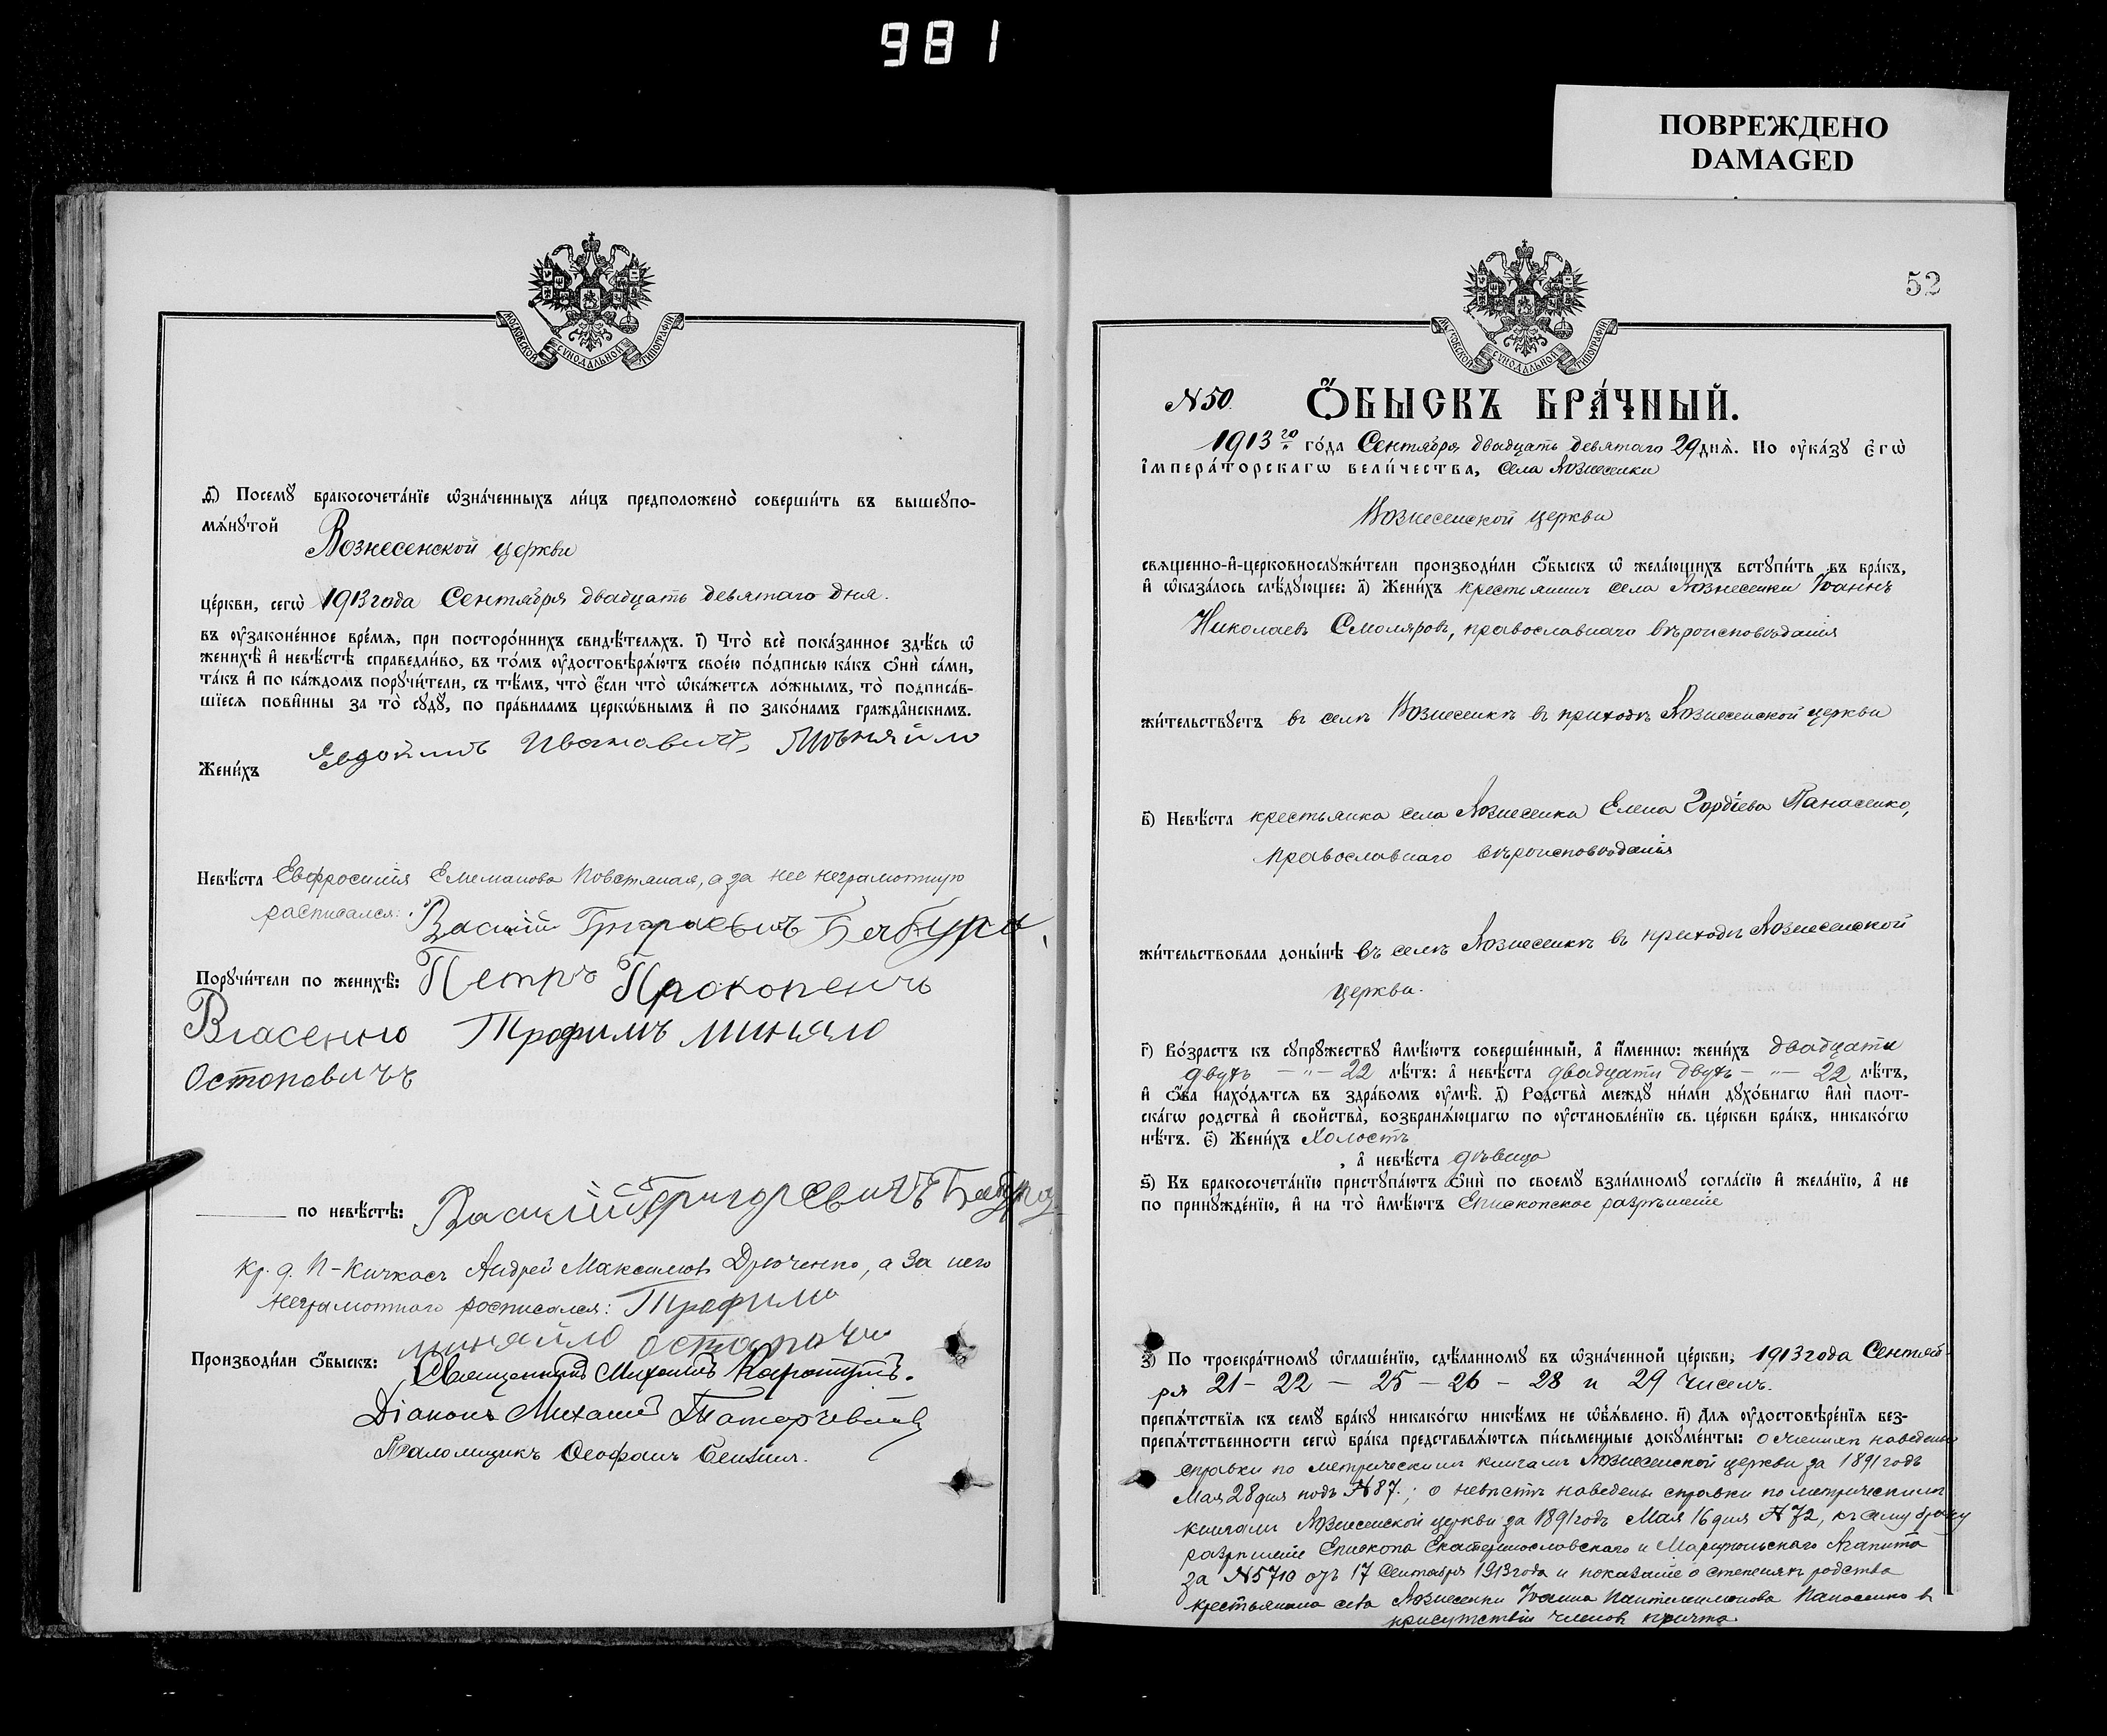 981
ПОВРЕЖДЕНО
DAMAGED
МОСКОВСКОЙ СѴНОДАЛЬНОЙ ТИПОГРАФІИ
ѳ҃) Посемꙋ бракосочета́нїе ѡзна́ченныхъ ли́цъ предположено̀ соверши́ть въ вышеꙋпо-
мѧ́нꙋтой
Вознесенской церкви
це́ркви, сегѡ̀ 1913 года Сентября двадцать девятаго дня.
въ ᲂу҆законе́нное вре́мѧ, при посторо́ннихъ свидѣ́телѧхъ. і҃) Что̀ всѐ пока́занное здѣ́сь ѡ҆
женихѣ̀ и҆ невѣ́стѣ справедли́во, въ то́мъ ᲂу҆достовѣрѧ́ютъ свое́ю по́дписью ка́къ ѻ҆нѝ са́ми,
та́къ и҆ по ка́ждомъ порꙋчи́тели, съ тѣ́мъ, что̀ є҆́сли что̀ ѡ҆ка́жетсѧ ло́жнымъ, то̀ подписа́в-
шїесѧ пови́нны за то̀ сꙋдꙋ̀, по пра́виламъ церкѡ́внымъ и҆ по зако́намъ гражда́нскимъ.
Жени́хъ Евдокимъ Ивановичъ
Невѣ́ста Евфросинія Емеманова Повстяная, а за нее неграмотную
расписался: Василій Григорьевичъ Бабура
Порꙋчи́тели по женихѣ̀: Петръ Прокопенчъ
Власенко Трофимъ Миняйло
Остоповичъ
по невѣ́стѣ: Василій Григорьевичъ Бабура
кр. д. П-Кичкасъ Андрей Максимовъ Дрюченко, а за него
неграмотного росписался: Трофимъ
миняйло остапочи
Производи́ли ѻ҆́быскъ: Священникъ Михаилъ
Діаконъ Михаилъ
Псаломщикъ Феофанъ
52
МОСКОВСКОЙ СѴНОДАЛЬНОЙ ТИПОГРАФІИ
N 50. Ѻ҆́БЫСКЪ БРА́ЧНЫЙ.
1913 го го́да Сентября двадцать девятаго 29 днѧ̀. По ᲂу҆ка́зꙋ є҆гѡ̀
і҆мпера́торскагѡ вели́чества, села Вознесенки
Вознесенской церкви
свѧщенно-и҆-церковнослꙋжи́тели производи́ли ѻ҆́быскъ ѡ҆ жела́ющихъ встꙋпи́ть въ бра́къ,
и҆ ѡ҆каза́лось слѣ́дꙋющее: а҃) Жени́хъ крестьянинъ села Вознесенки Іоаннъ
Николаевъ Смоляровъ, православнаго вѣроисповѣданія
жи́тельствꙋетъ въ селѣ Вознесенкѣ въ приходѣ Вознесенской церкви
в҃) Невѣ́ста крестьянка села Вознесенки Елена Гордіева Панасенко,
православнаго вѣроисповѣданія
жи́тельствовала донынѣ въ селѣ Вознесенкѣ въ приходѣ Вознесенской
церкви.
г҃) Во́зрастъ къ сꙋпрꙋ́жествꙋ и҆мѣ́ютъ соверше́нный, а҆ и҆́меннѡ: жени́хъ двадцати
двухъ — „ — 22 лѣ́тъ: а҆ невѣ́ста двадцати двухъ — „ — 22 лѣ́тъ,
и҆ ѻ҆́ба нахо́дѧтсѧ въ здра́вомъ ᲂу҆мѣ̀. д҃) Родства̀ междꙋ ни́ми дꙋхо́внагѡ и҆лѝ плот-
ска́гѡ родства̀ и҆ свойства̀, возбранѧ́ющагѡ по ᲂу҆становле́нїю св. це́ркви бра́къ, никако́гѡ
нѣ́тъ. є҃) Жени́хъ холостъ
, а҆ невѣ́ста дѣвица
ѕ҃) Къ бракосочета́нїю пристꙋпа́ютъ ѻ҆нѝ по своемꙋ̀ взаи́мномꙋ согла́сїю и҆ жела́нїю, а҆ не
по принꙋжде́нїю, и҆ на то̀ и҆мѣ́ютъ Епископское разрѣшеніе
з҃) По троекра́тномꙋ ѡ҆глаше́нїю, сдѣ́ланномꙋ въ ѡ҆зна́ченной це́ркви, 1913 года Сентяб-
ря 21 — 22 — 25 — 26 — 28 и 29 чиселъ.
препѧ́тствїѧ къ семꙋ̀ бра́кꙋ никако́гѡ никѣ́мъ не ѡ҆бъѧ́влено. и҃) Для ᲂу҆достовѣре́нїѧ без-
препѧ́тственности сегѡ̀ бра́ка представлѧ́ютсѧ пи́сьменные докꙋме́нты: о женихѣ наведены
справки по метрическимъ книгамъ Вознесенской церкви за 1891 годъ
Мая 28 дня подъ № 87.; о невѣстѣ наведены справки по метрическимъ
книгамъ Вознесенской церкви за 1891 годъ Мая 16 дня № 72, къ сему браку
разрѣшеніе Епископа Екатеринославскаго и Маріупольскаго Агапита
за № 5710 отъ 17 Сентября 1913 года и показаніе о степеняхъ родства
крестьянина села Вознесенки Іоанна Пантелеимонова Панасенко в
присутствіи членовъ причта.